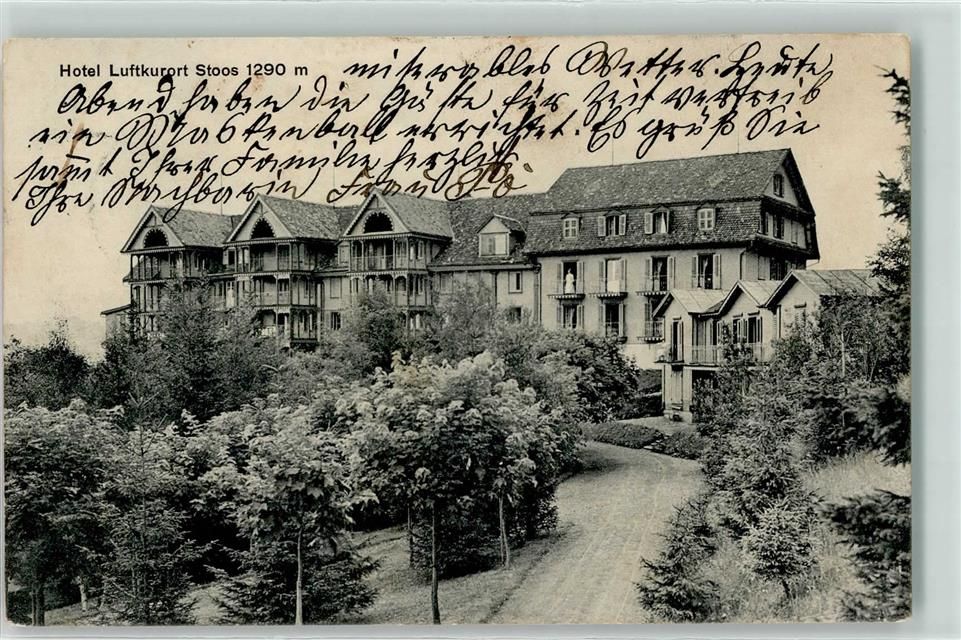 Hotel Luftkurort Stoos 1290 m
miserables Wetter. Heute
Abend haben die Gäste für Zeitvertreib
ein Maskenball errichtet. Es grüßt Sie
samt Ihrer Familie herzlich
Ihre Nachbarin Frau